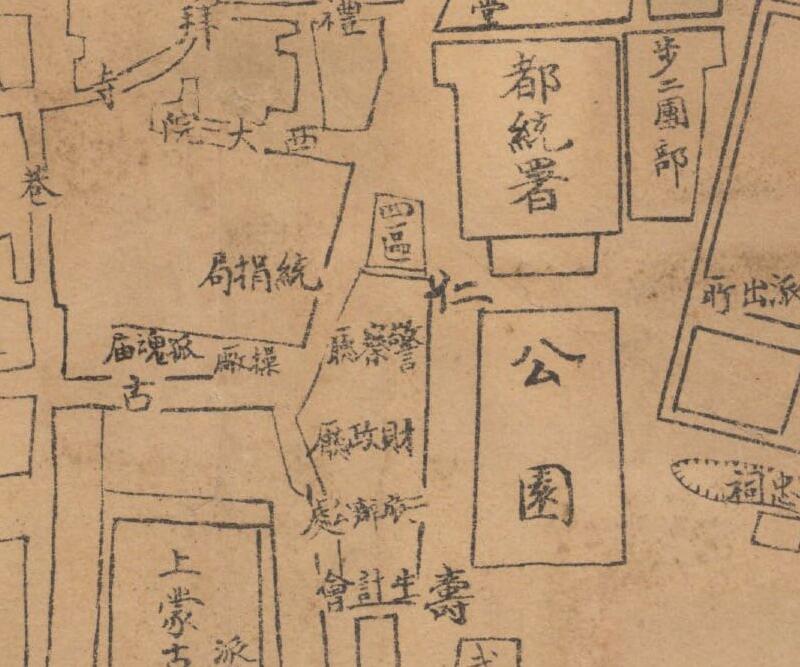 堂
禮拜寺
巷
西大二院
都統署
步二團部
四區
統捐局
仁
派出所
孤魂庙
操厰
警察廳
古
財政廳
公園
忠祠
生計會
壽
上蒙古
派